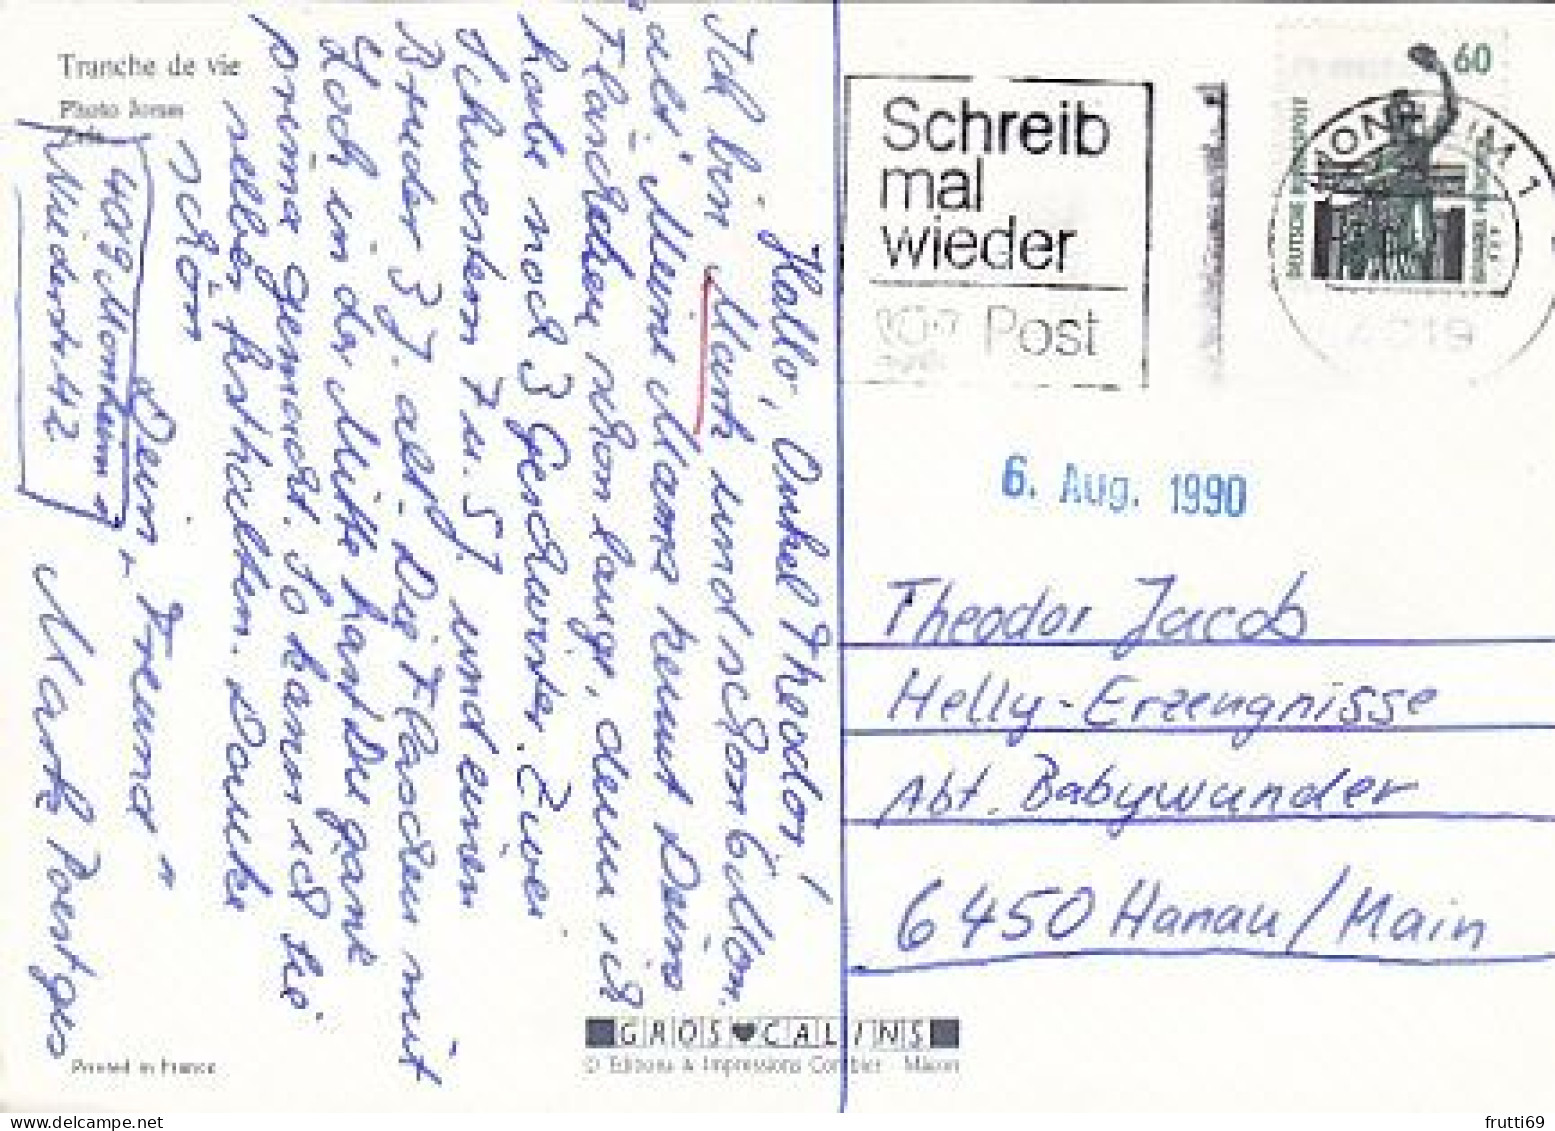 Tranche de vie
Photo Jonas
Hallo, Onkel Theodor!
Ich bin Mark und schon 6 Mon.
alt. Meine Mama kennt Deine
Fläschchen schon lange, denn ich
habe noch 3 Geschwister. Zwei
Schwestern 7 u. 5 J. und einen
Bruder 3 J. alt. Die Flaschen mit
Loch in der Mitte hast Du ganz
prima gemacht. So kann ich sie
selber festhalten. Danke
schön
Dein "Freund"
Mark Poestges
4019 Monheim 2
Niederstr. 42
Printed in France
GROS CALINS
© Editions & Impressions Combier - Macon
Schreib
mal
wieder
Post
60
DEUTSCHE BUNDESPOST
MONHEIM 1
4019
6. Aug. 1990
Theodor Jacob
Helly-Erzeugnisse
Abt. Babywunder
6450 Hanau/Main
frutti69